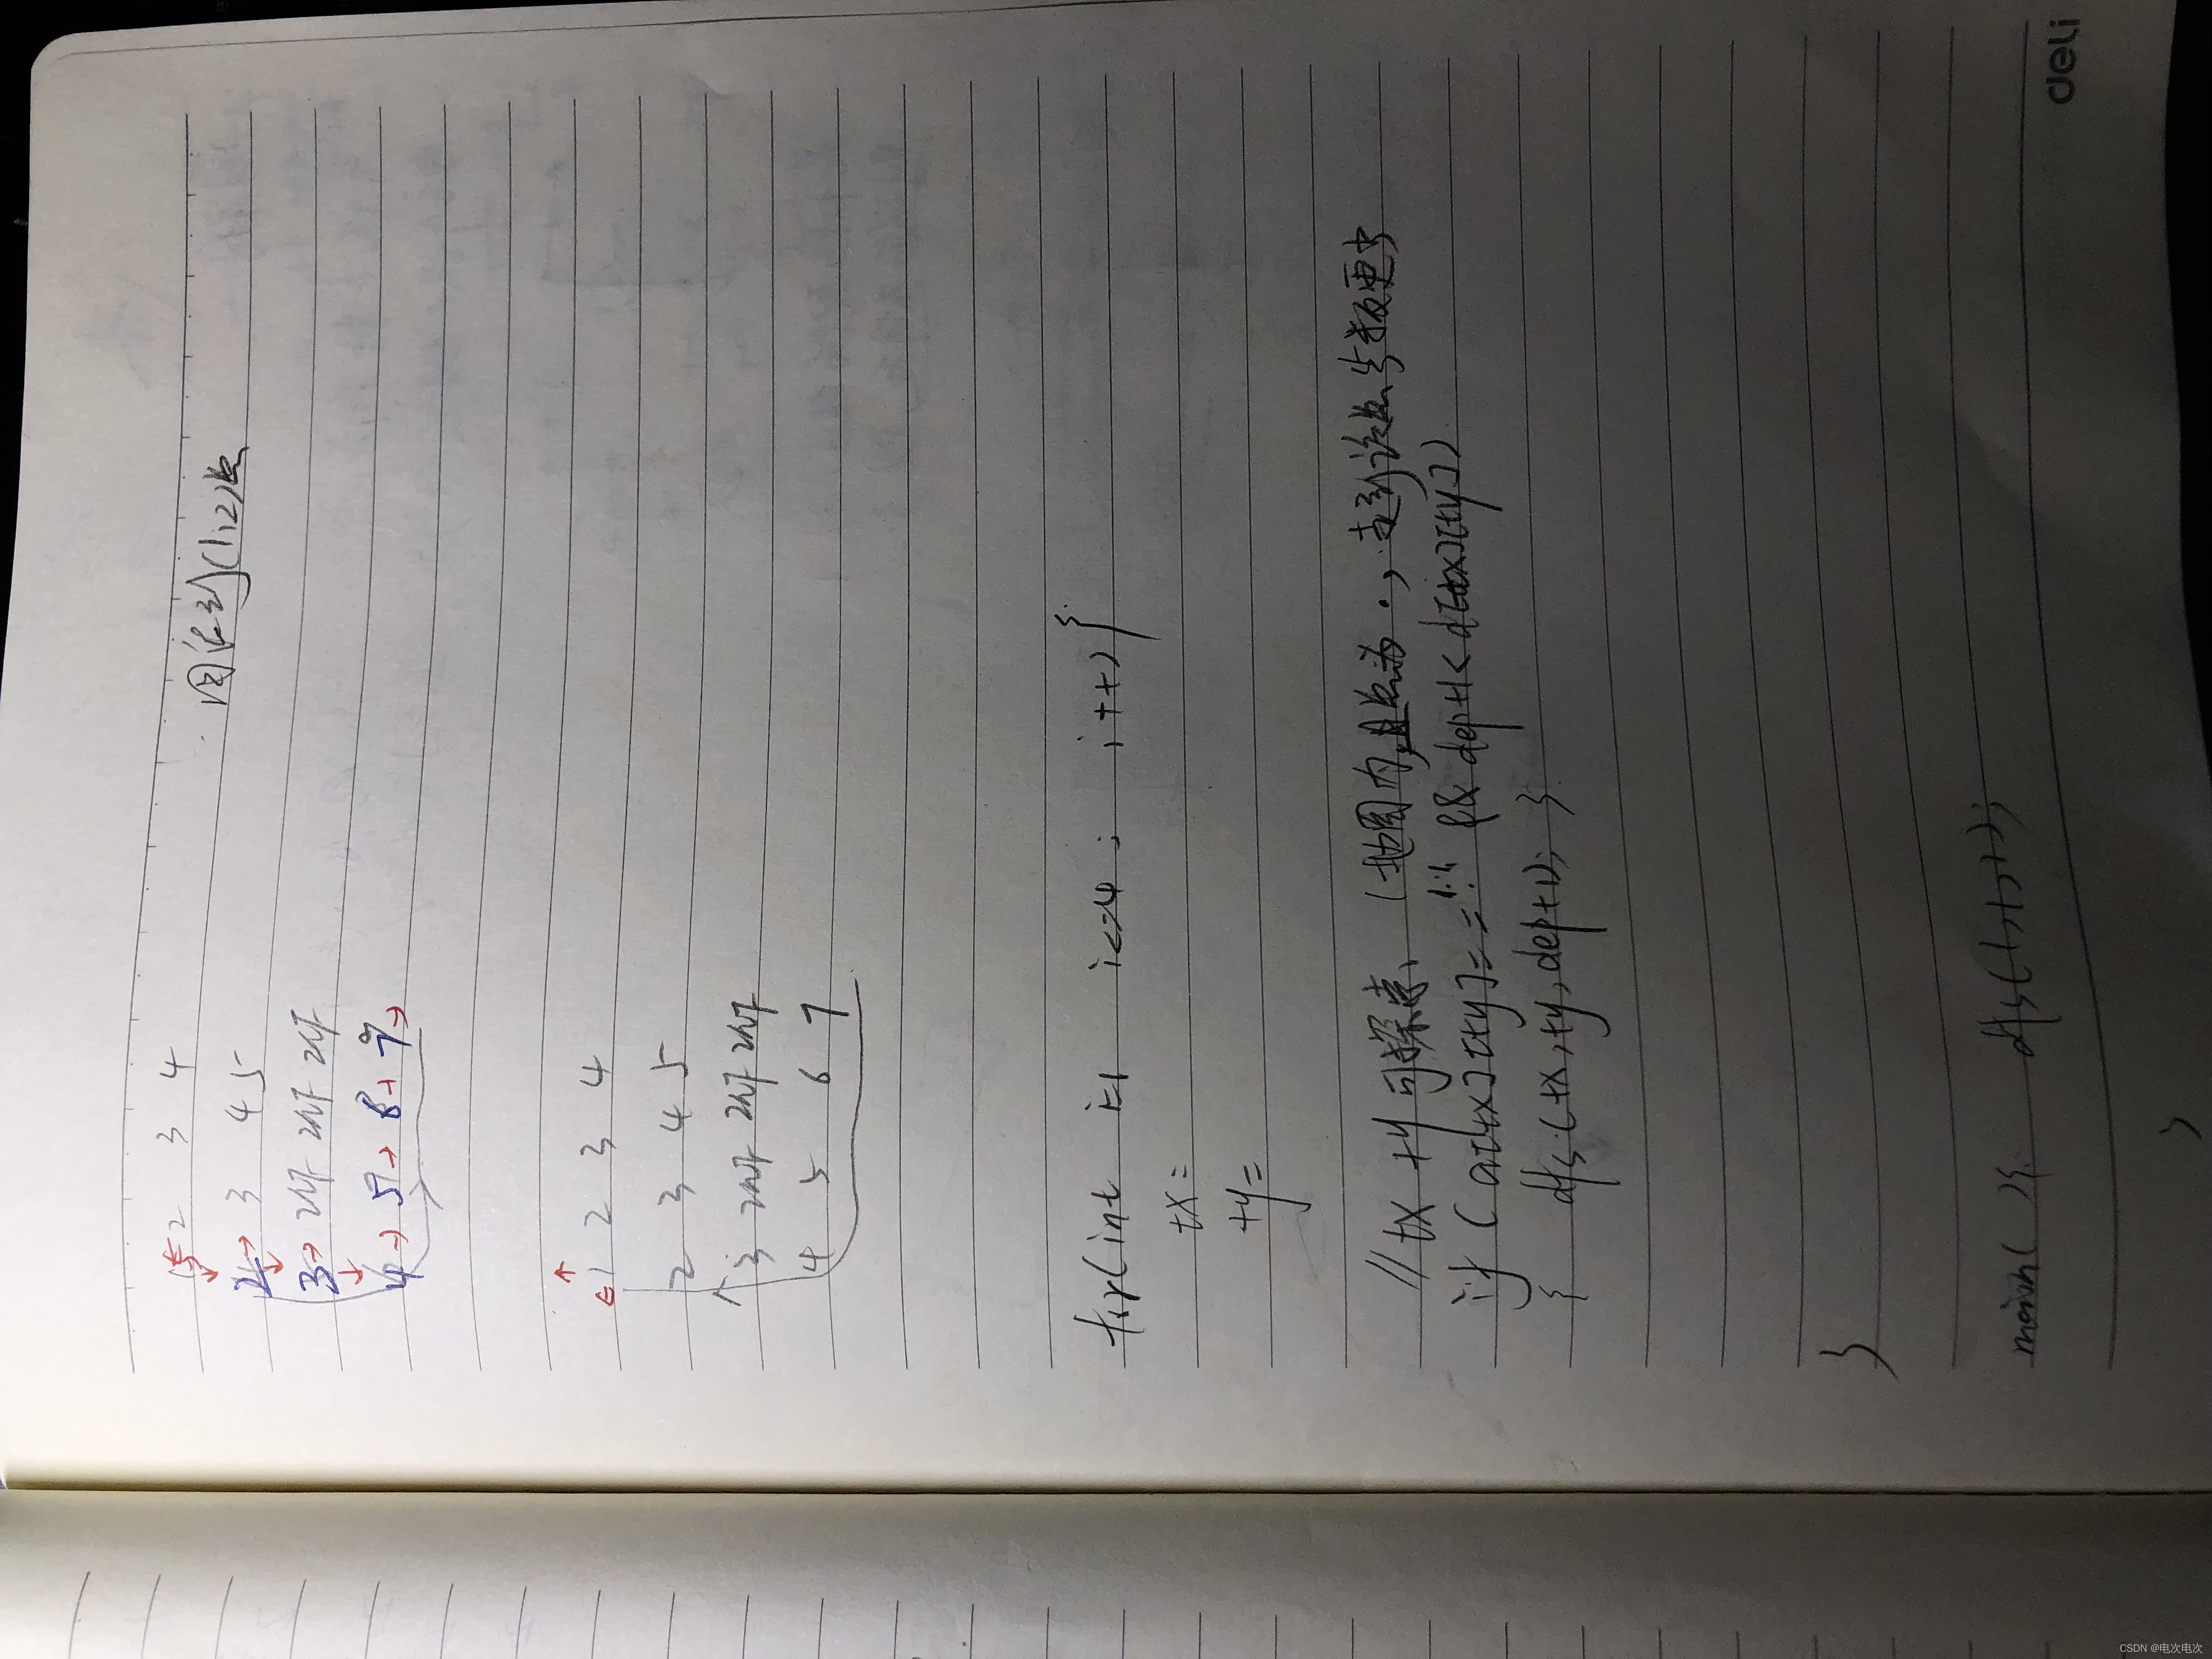 1 2 3 4
回溯到(1,2)点
2 3 4 5
3 2/F 2/F 2/F
4 5 6 7
1 2 3 4
2 3 4 5
3 2/F 2/F 2/F
4 5 6 7
for(int i=1 i<=4; i++){
tx=
ty=
// tx ty 可探索、(地图内,且点为 . , 走到该点步数更少
if (a[tx][ty]=='.' && dep+1<d[tx][ty])
{ dfs(tx,ty,dep+1); }
}
main(){ dfs(1,1,1);
}
deli
CSDN @电次电次